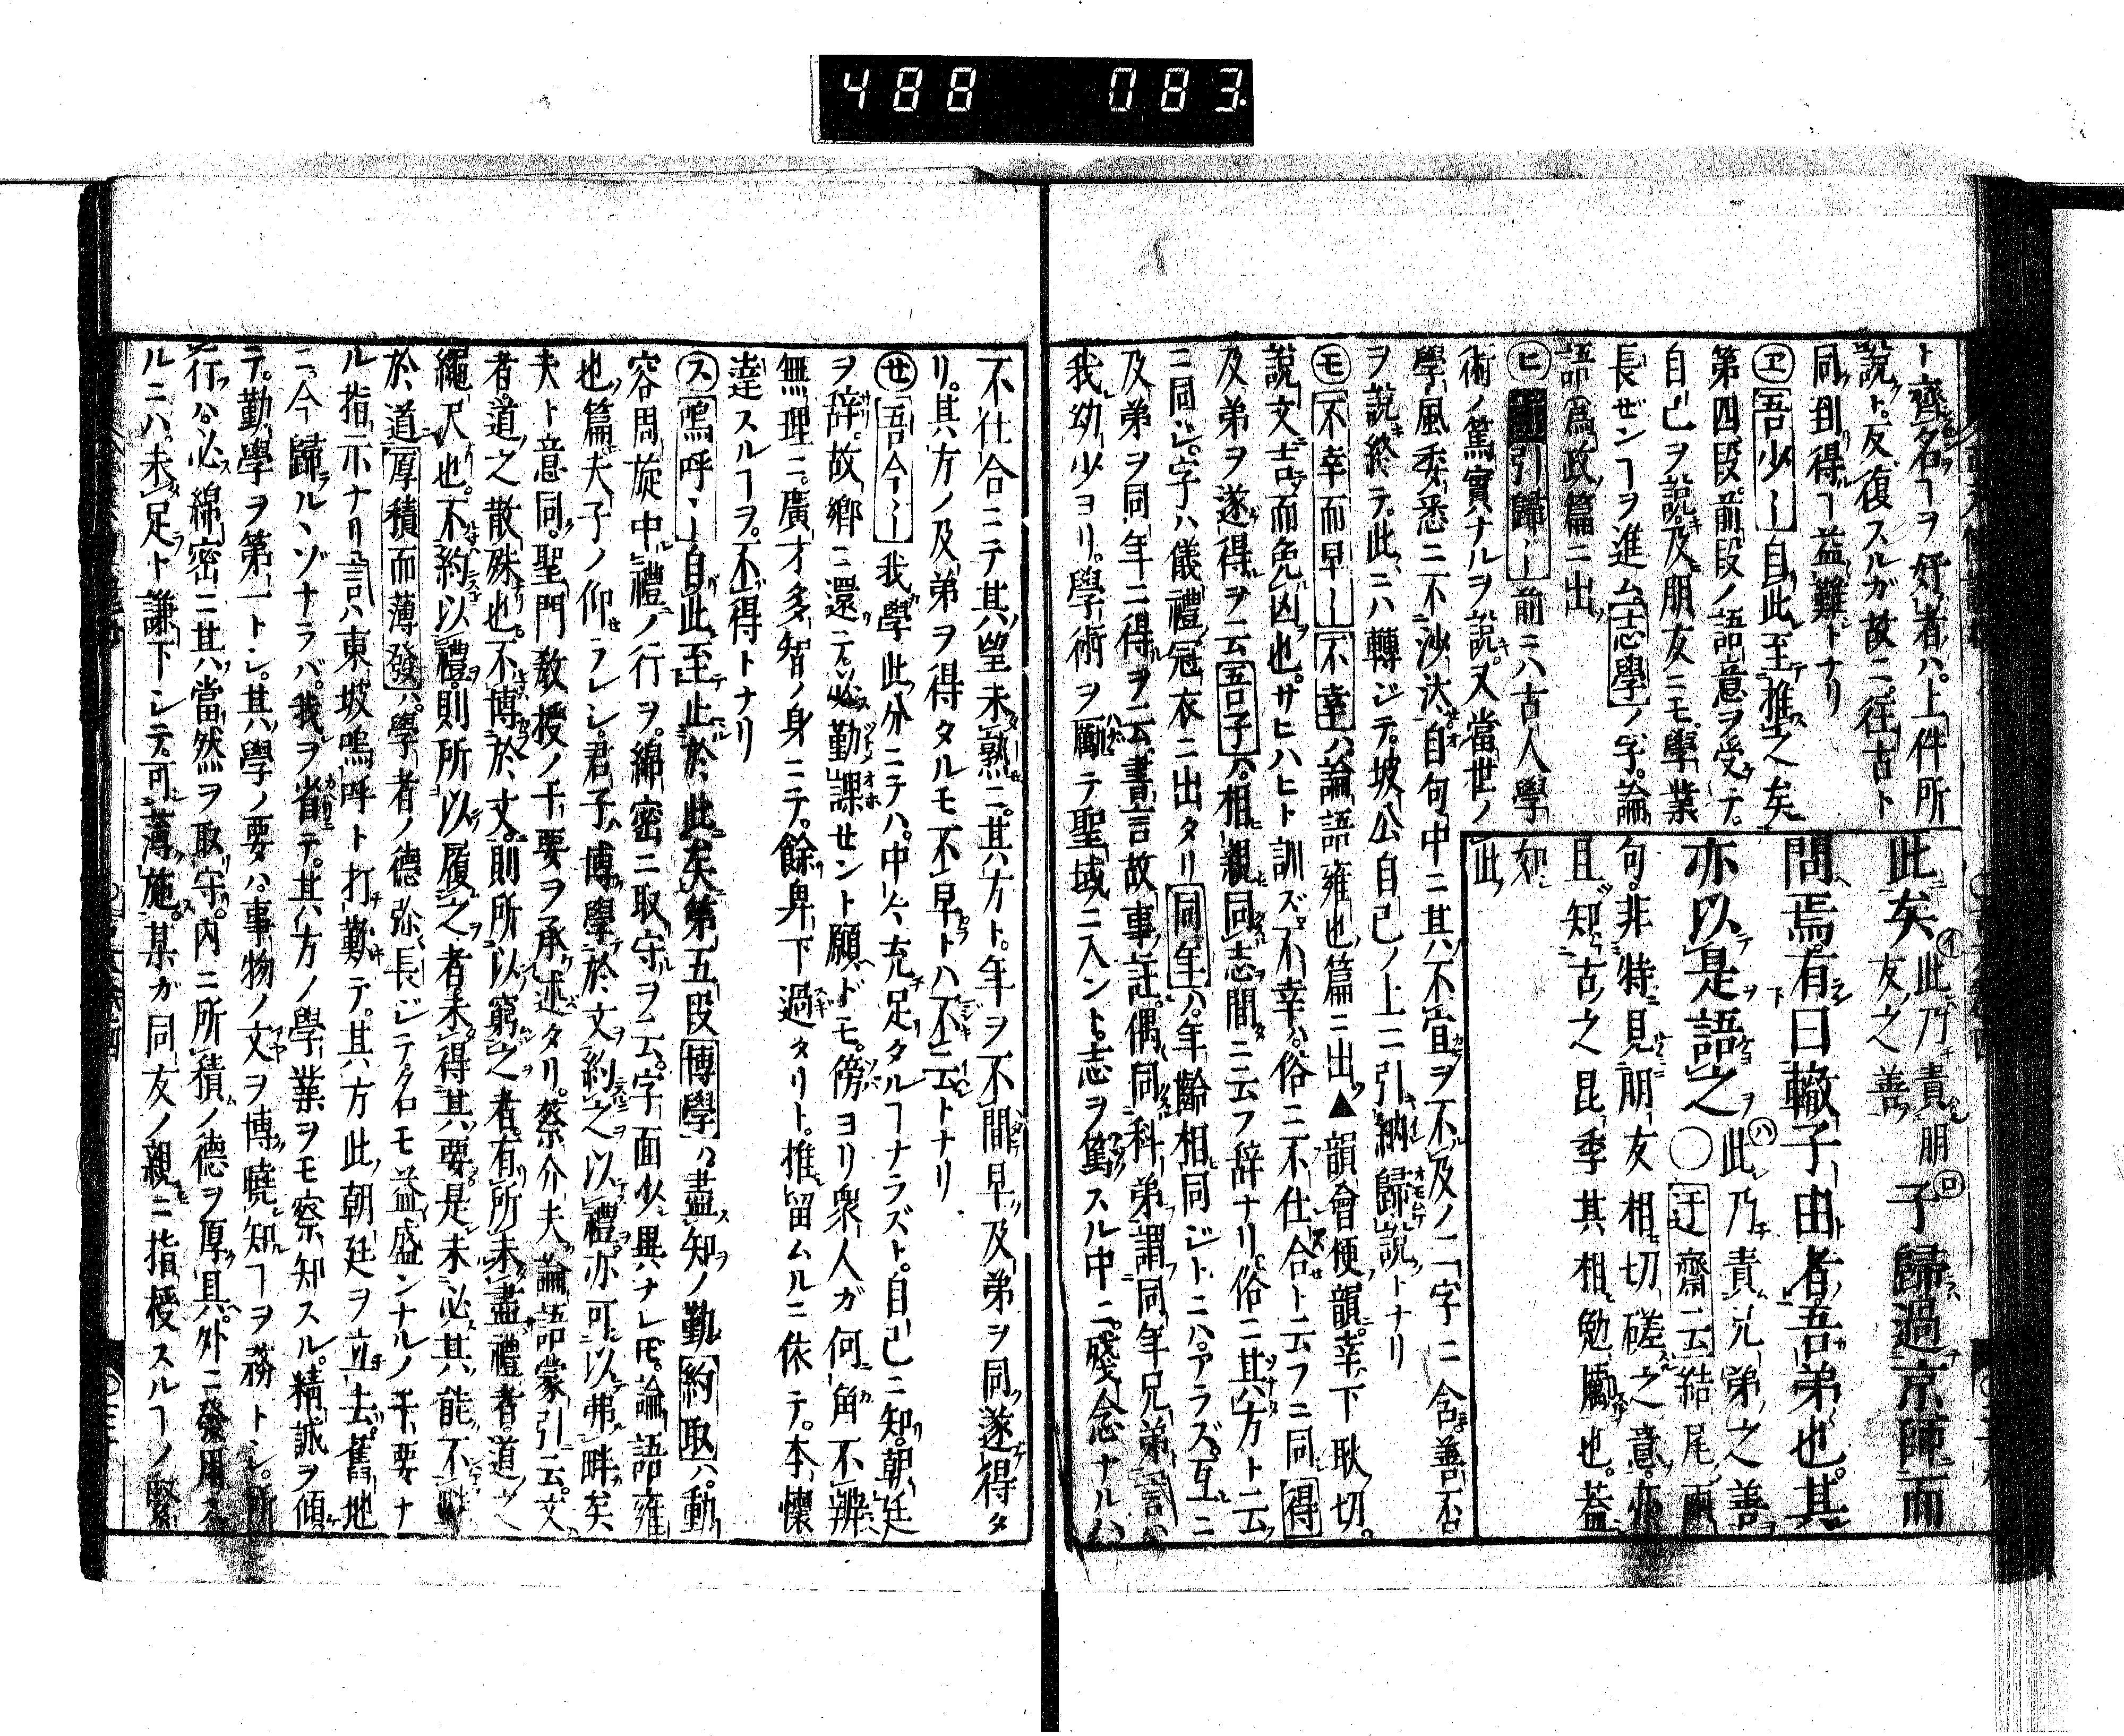 488 083
ト齊名ヿヲ好者ハ。上件所
說ト。反復スルガ故ニ。往古ト
同到得ヿ益難トナリ
ヱ吾少ー自此至推之矣
第四段。前段ノ語意ヲ受テ。
自己ヲ說。及朋友ニモ。學業
長ゼンヿヲ進ム志學ノ字。論
語爲政篇ニ出
ヒ引歸ー前ニハ古人學
術ノ篤實ナルヲ說。又當世ノ
學風委悉ニ不沙汰。自句中ニ其不宜ヲ不及ノ二字ニ含善否
ヲ說終テ。此ニハ轉ジテ。坡公自己ノ上ニ引納歸說トナリ
モ不幸而早ー不幸ハ論語雍也篇ニ出▲韻會便韻。幸下耿切。
說文吉而免凶也。サヒハヒト訓ズ。不幸ハ。俗ニ不仕合ト云フニ同得
及弟ヲ遂得ヲ云吾子ハ。相親同志間ニ云フ辞ナリ。俗ニ其方ト云
ニ同ジ。字ハ儀禮冠衣ニ出タリ同年ハ。年齡相同ジトニハアラズ。互ニ
及弟ヲ同年ニ得ヲ云。書言故事註。偶同科弟。謂同年兄弟言ハ
我幼少ヨリ。學術ヲ勵テ聖域ニ入ント。志ヲ篤スル中ニ。殘念ナルハ
此矣オ此乃責朋友之善ロ子歸過京師而
問焉。有曰轍子由者。吾弟也。其
亦以是語之ハ此乃責兄弟之善〇迂齋云結尾兩
句。非特見朋友相切磋之意。亦
且知古之昆季其相勉勵也。蓋
如
此
不仕合ニテ其望未熟ニ。其方ト。年ヲ不間早及弟ヲ同遂得タ
リ。其方ノ及弟ヲ得タルモ不早トハ不云トナリ
サ吾今ー我學此分ニテハ。中々充足タルヿナラズト。自己ニ知。朝廷
ヲ辞。故鄉ニ還テ。必勤課セント願ドモ。傍ヨリ衆人ガ何角不辨
無理ニ。廣才多智ノ身ニテ。餘卑下過タリト。推留ムルニ依テ。本懷
達スルヿヲ。不得トナリ
ス嗚呼ー自此至止於此矣第五段博學ハ盡知ノ勤約取ハ動
容周旋中禮ノ行ヲ。綿密ニ取守ヲ云。字面少異ナレ𪜈。論語雍
也篇夫子ノ仰ラレシ。君子博學於文約之以禮。亦可以弗畔矣
夫ト意同。聖門敎授ノ干要ヲ承述タリ。蔡介夫論語蒙引云。文
者。道之散殊也。不博於文。則所以窮之者。有所未盡禮者。道之
繩尺也。不約以禮。則所以履之者未得其要。是未必其能不畔
於道厚積而薄發ハ。學者ノ德弥長ジテ。名モ益盛ンナルノ干要ナ
ル指示ナリ言ハ東坡嗚呼ト打歎テ。其方此朝廷ヲ立去。舊地
ニ。今歸ルヽゾナラバ。我ヲ省テ。其方ノ學業ヲモ察知スル。精誠ヲ傾
テ。勤學ヲ第一トシ。其學ノ要ハ。事物ノ文ヲ博曉知ヿヲ務トシ。所
行ハ。必綿密ニ其當然ヲ取守。內ニ所積ノ德ヲ厚具。外ニ發用ス
ルニハ。未足ト謙下シテ。可薄施。某ガ同友ノ親ニ指授スルヿノ緊